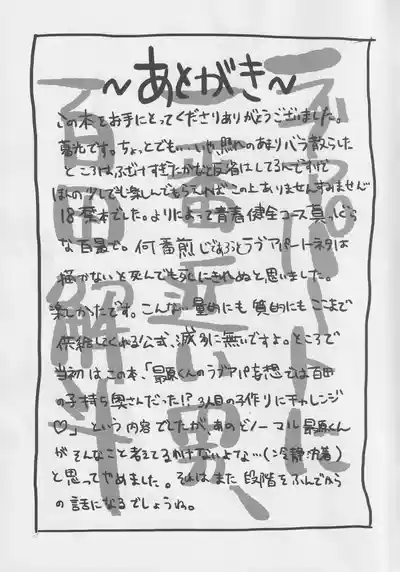 ～あとがき～
この本をお手にとってくださりありがとうございました。
暮光です。ちょっとでも…いや、照れのあまりバラ散らした
ところはふざけすぎたかなと反省はしてるんですけど
ほんの少しでも楽しんでもらえればこの上ありませんすみません
18禁本でした。よりによって青春健全コース真っしぐら
な百最で。何番煎じであろうとラブアパートネタは
描かないと死んでも死にきれぬと思いました。
楽しかったです。こんな…量的にも質的にもここまで
供給してくれる公式、滅多に無いですよ。ところで
当初はこの本、「最原くんのラブアパ妄想では百田
の子持ち奥さんだった!?3人目の子作りにチャレンジ
♡」という内容でしたが、あのどノーマル最原くん
がそんなこと考えてるわけないよな…(冷静沈着)
と思ってやめました。それはまた段階をふんでから
の話になるでしょうね。
ラブアパートに
一番近い男、
百田解斗